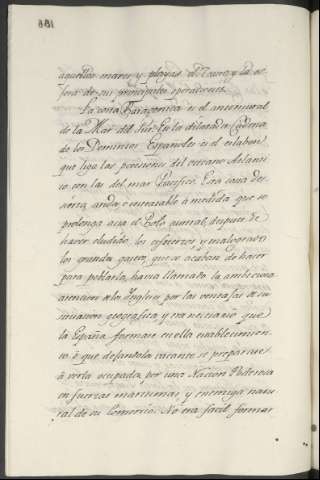 aquellos mares y playas el Teatro y la es-
fera de sus principales operaciones.
La costa Patagonica es el antemural
de la Mar del Sur. En la dilatada Cadena
de los Dominios Españoles es el eslabon
que liga las posesiones del oceano Atlanti-
co con las del mar Pacifico. Esta costa des-
ierta, arida, é intratable à medida que se
prolonga acia el Polo austral, despues de
haver eludido los esfuerzos y malogrado
los grandes gastos, que se acaban de hacer
para poblarla, havia llamado la ambiciosa
atencion á los Ingleses por las ventajas de su
situacion geografica y era necesario que
la España formase en ella establecimien-
to ó que dejandola vacante se preparase
á verla ocupada por una Nacion Poderosa
en fuerzas maritimas, y enemiga natu-
ral de su Comercio. No era facil formar